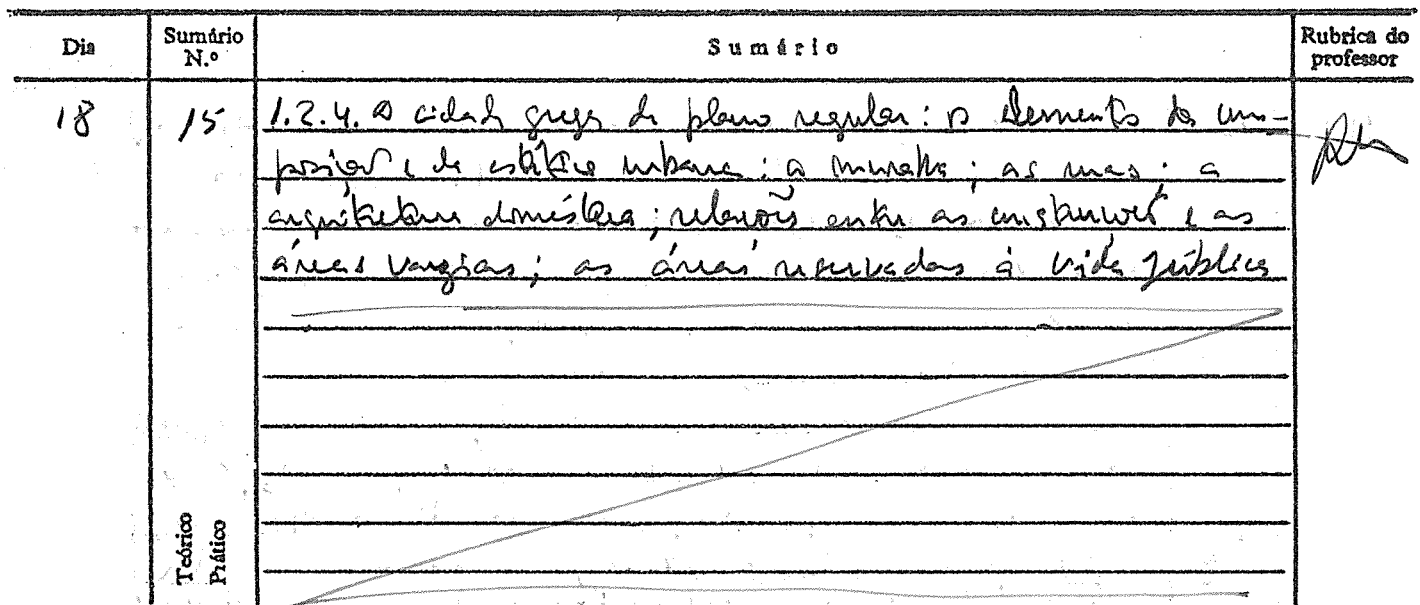 Dia
Sumário N.º
Sumário
Rubrica do professor
18
15
1.2.4. A cidade grega de plano regular: os elementos da com-
posição e da estética urbana: a muralha; as ruas; a
arquitectura doméstica; relações entre as construções e as
áreas vazias; as áreas reservadas à vida pública
Teórico
Prático